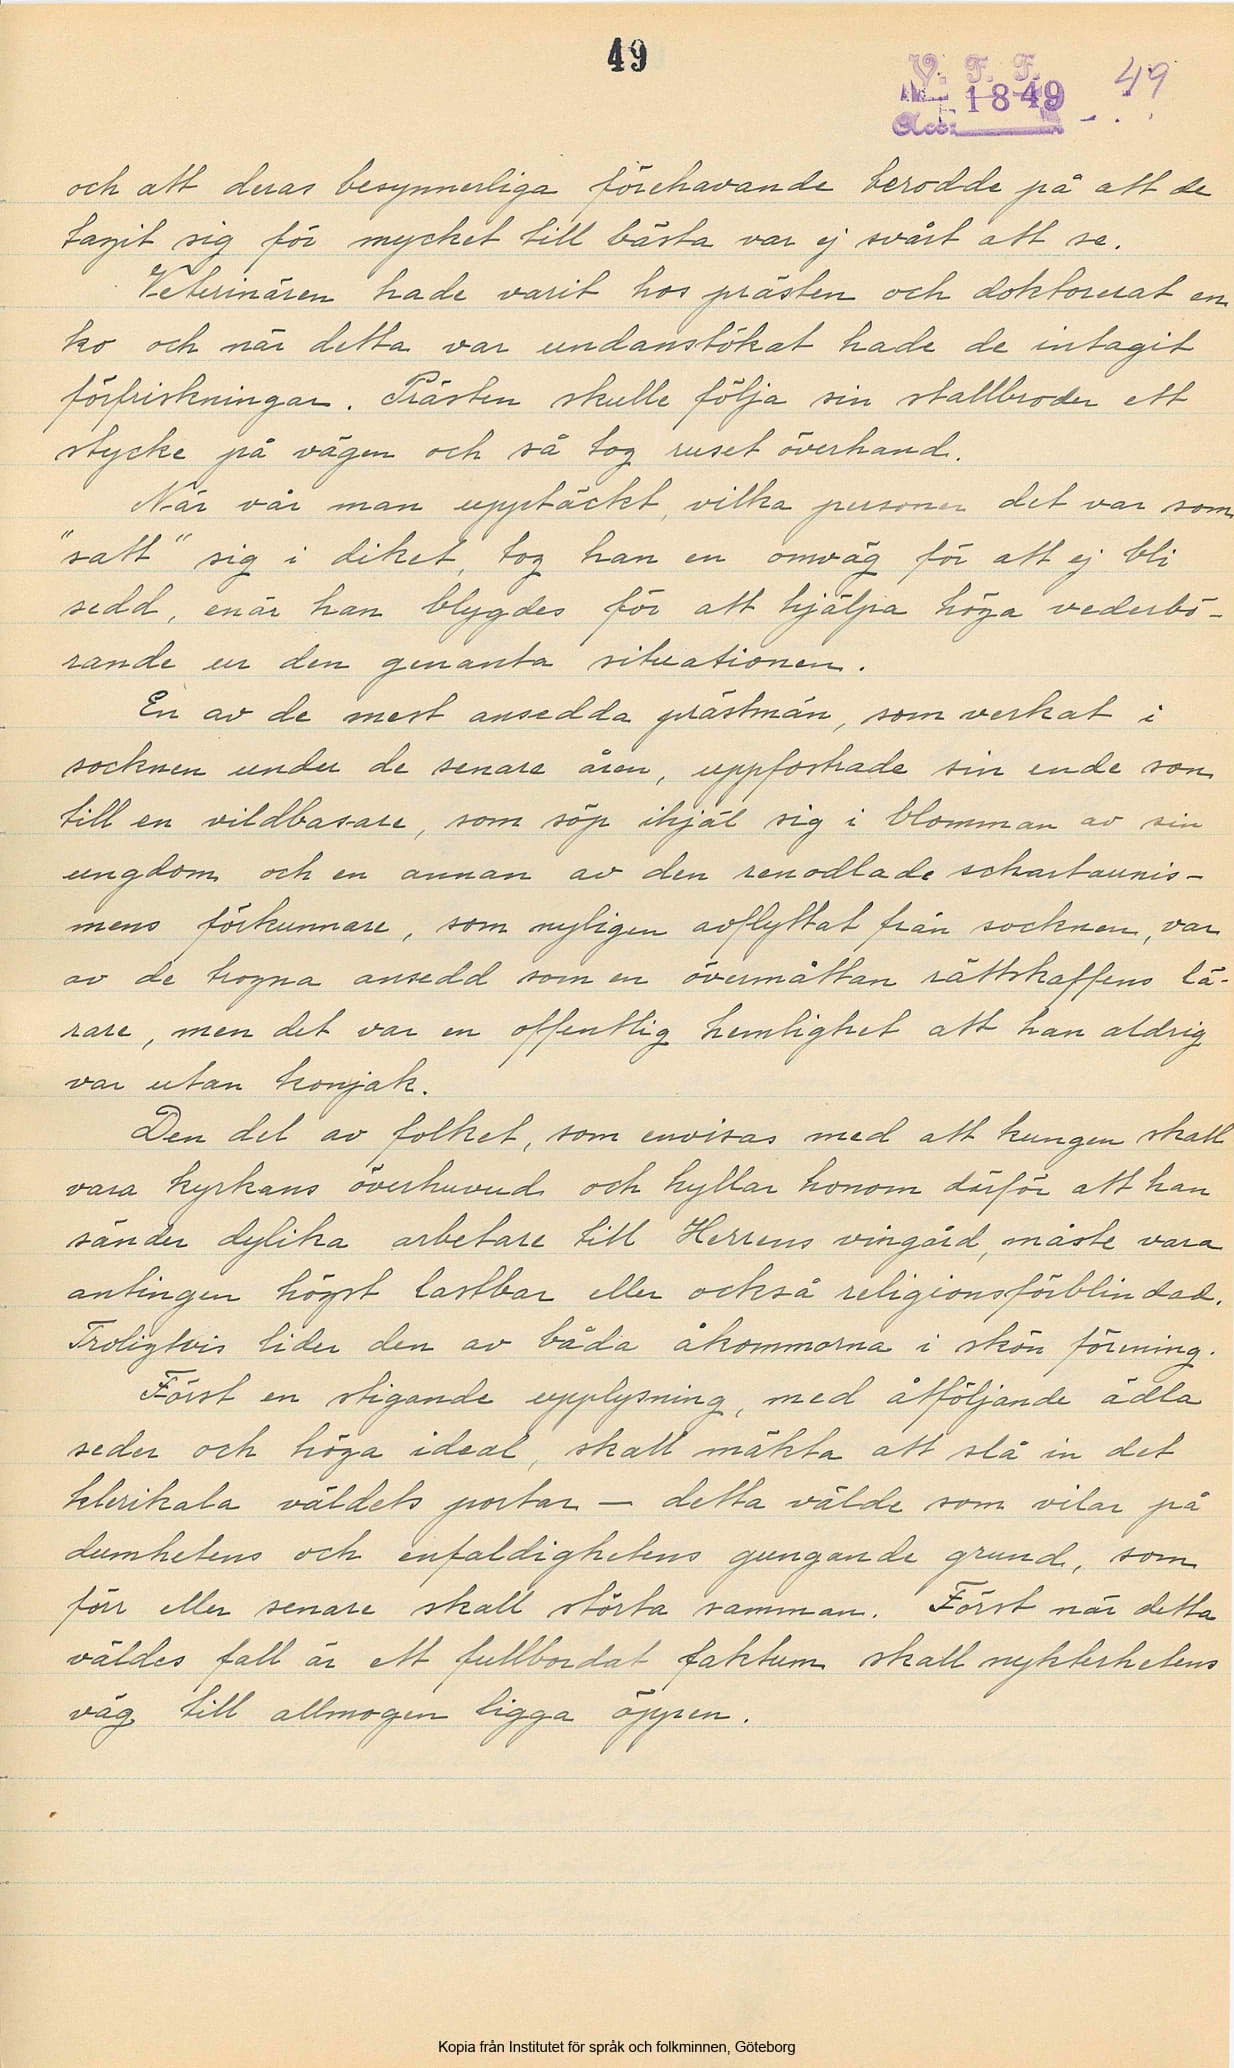 49
V. F. F.
1849
Acc:
49
och att deras besynnerliga förehavande berodde på att de
tagit sig för mycket till bästa var ej svårt att se.
Veterinären hade varit hos prästen och doktorerat en
ko och när detta var undanstökat hade de intagit
förfriskningar. Prästen skulle följa sin stallbroder ett
stycke på vägen och så tog ruset överhand.
När vår man upptäckt, vilka personer det var som
"satt" sig i diket, tog han en omväg för att ej bli
sedd, enär han blygdes för att hjälpa höga vederbö-
rande ur den genanta situationen.
En av de mest ansedda prästmän, som verkat i
socknen under de senare åren, uppfostrade sin ende son
till en vildbasare, som söp ihjäl sig i blomman av sin
ungdom och en annan av den renodlade schartaunis-
mens förkunnare, som nyligen avflyttat från socknen, var
av de trogna ansedd som en övermåttan rättskaffens lä-
rare, men det var en offentlig hemlighet att han aldrig
var utan konjak.
Den del av folket, som envisas med att kungen skall
vara kyrkans överhuvud och hyllar honom därför att han
sänder dylika arbetare till Herrens vingård, måste vara
antingen högst lastbar eller också religionsförblindad.
Troligtvis lider den av båda åkommorna i skön förening.
Först en stigande upplysning, med åtföljande ädla
seder och höga ideal, skall mäkta att slå in det
klerikala väldets portar — detta välde som vilar på
dumhetens och enfaldighetens gungande grund, som
förr eller senare skall störta samman. Först när detta
väldes fall är ett fullbordat faktum skall nykterhetens
väg till allmogen ligga öppen.
Kopia från Institutet för språk och folkminnen, Göteborg